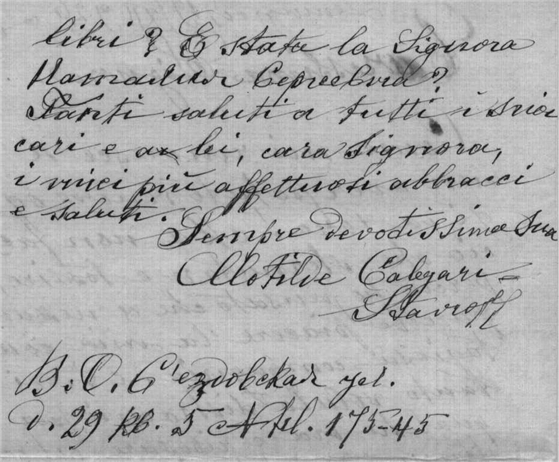 libri? È stata la Signora
Наталия Сергеевна?
Tanti saluti a tutti i suoi
cari e a lei, cara Signora,
i miei più affettuosi abbracci
e saluti.
Sempre devotissima Sua
Clotilde Calegari-
Stavroff
В. О. Съездовская ул.
д. 29 кв. 5 A tel. 175-45